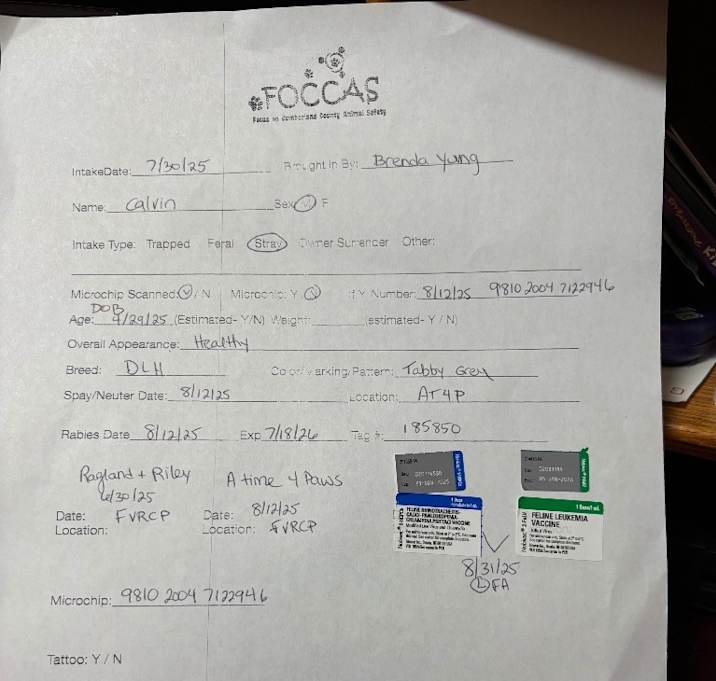 FOCCAS
Focus on Cumberland County Animal Safety
IntakeDate: 7/30/25 Brought In By: Brenda Yung
Name: Calvin Sex: M F
Intake Type: Trapped Feral Stray Owner Surrender Other:
Microchip Scanned: Y / N Microchip: Y / N If Y Number: 8/12/25 9810 2004 7122946
DOB
Age: 4/29/25 (Estimated- Y/N) Weight: (estimated- Y / N)
Overall Appearance: Healthy
Breed: DLH Color/Marking/Pattern: Tabby Grey
Spay/Neuter Date: 8/12/25 Location: AT4P
Rabies Date 8/12/25 Exp 7/18/26 Tag #: 185850
Ragland + Riley A time 4 Paws
6/30/25
Date: FVRCP Date: 8/12/25
Location: Location: FVRCP
1 Dose
FELINE RHINOTRACHEITIS-
CALICI-PANLEUKOPENIA-
CHLAMYDIA PSITTACI VACCINE
FELINE LEUKEMIA
VACCINE
8/31/25
L FA
Microchip: 9810 2004 7122946
Tattoo: Y / N